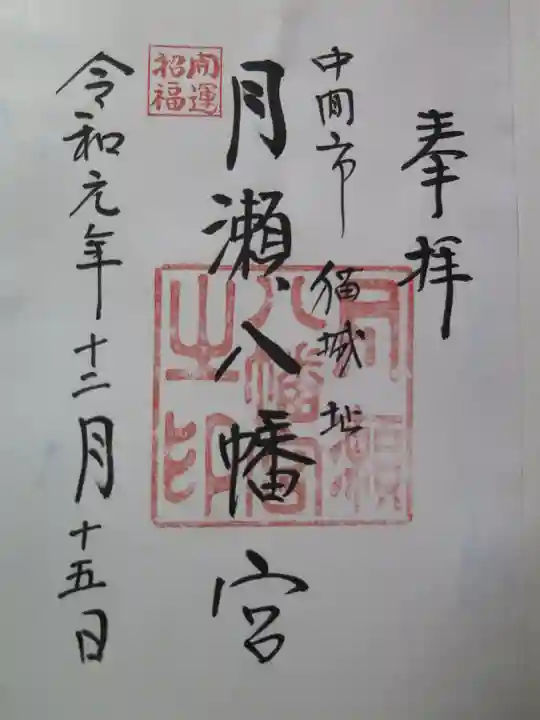 奉拝
中間市 猫城址
月瀬八幡宮
月瀬
八幡宮
之印
開運
招福
令和元年十二月十五日